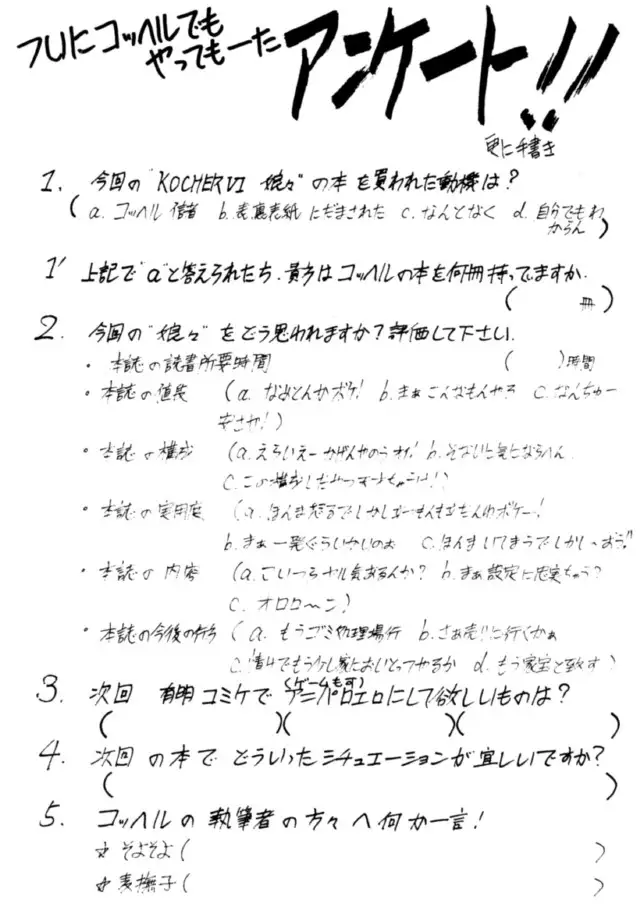 フいにコッヘルでも
やってもーた
アンケート!!
更に手書き
1. 今回の“KOCHER VI 娘々”の本を買われた動機は?
(a. コッヘル信者 b. 表裏表紙にだまされた c. なんとなく d. 自分でもわ
からん)
1' 上記で“a”と答えられたち、貴方はコッヘルの本を何冊持ってますか.
( 冊)
2. 今回の“娘々”をどう思われますか?評価して下さい.
・本誌の読書所要時間 ( )時間
・本誌の値段 (a. なめとんかボケ! b. まぁこんなもんやろ c. なんちゅー
安さや!)
・本誌の構成 (a. えろいえーかげんやのうオイ! b.
c. この構成しだみつ
・本誌の実用度 (a. ほんま怒るでしかし
b. まぁ一発ぐらいかいのぉ c. ほんまいてまうでしかし
・本誌の内容 (a. こいつらヤル気あるんか? b. まぁ設定に忠実ちゃう?
c. オロロ〜ン)
・本誌の今後の行方 (a. もうゴミ処理場行 b. さぁ売りに行くかぁ
c. 情けでもう少し家においとってやるか d. もう家宝と致す)
3. 次回 有明コミケで アニパロエロにして欲しいものは?
(ゲームも可)
( )( )( )
4. 次回の本で どういったシチュエーションが宜しいですか?
( )
5. コッヘルの執筆者の方々へ何か一言!
☆そよそよ( )
☆麦撫子( )